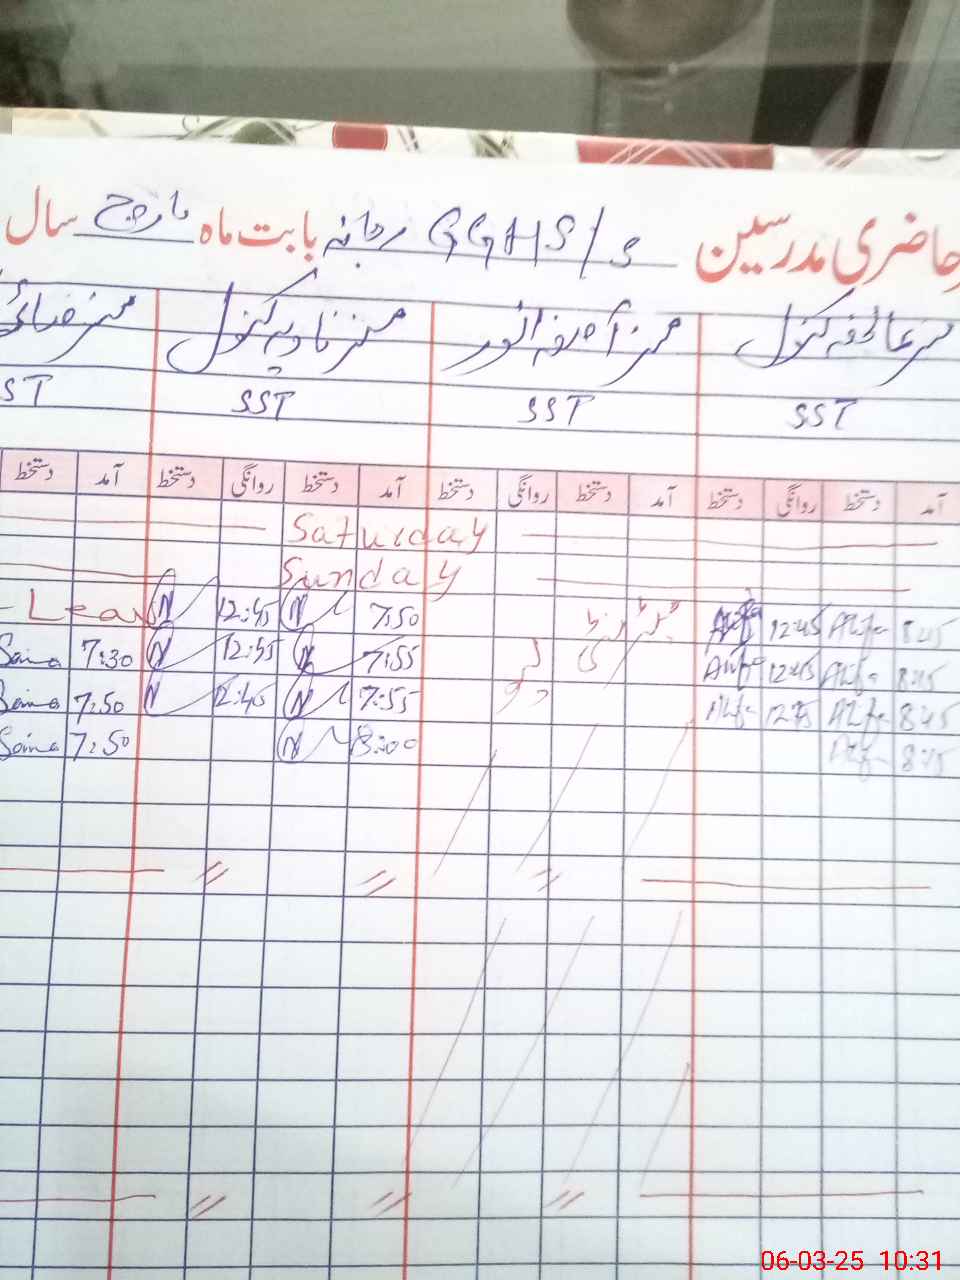 حاضری مدرسین GGHS/S رجانہ بابت ماہ مارچ سال
مسز عاطفہ کنول مسز آصفہ انور مسز نادیہ کنول مسز
SST SST SST ST
آمد دستخط روانگی دستخط آمد دستخط روانگی دستخط آمد دستخط روانگی دستخط آمد دستخط
Saturday
Sunday
8:45 Atifa 12:45 Atifa 7:50 N 12:45 N Leav
8:45 Atifa 12:45 Atifa 7:55 N 12:45 N 7:30 Saima
8:45 Atifa 1245 Atifa 7:55 N 12:45 N 7:50 Saima
8:45 Atifa 8:00 N 7:50 Saima
06-03-25 10:31